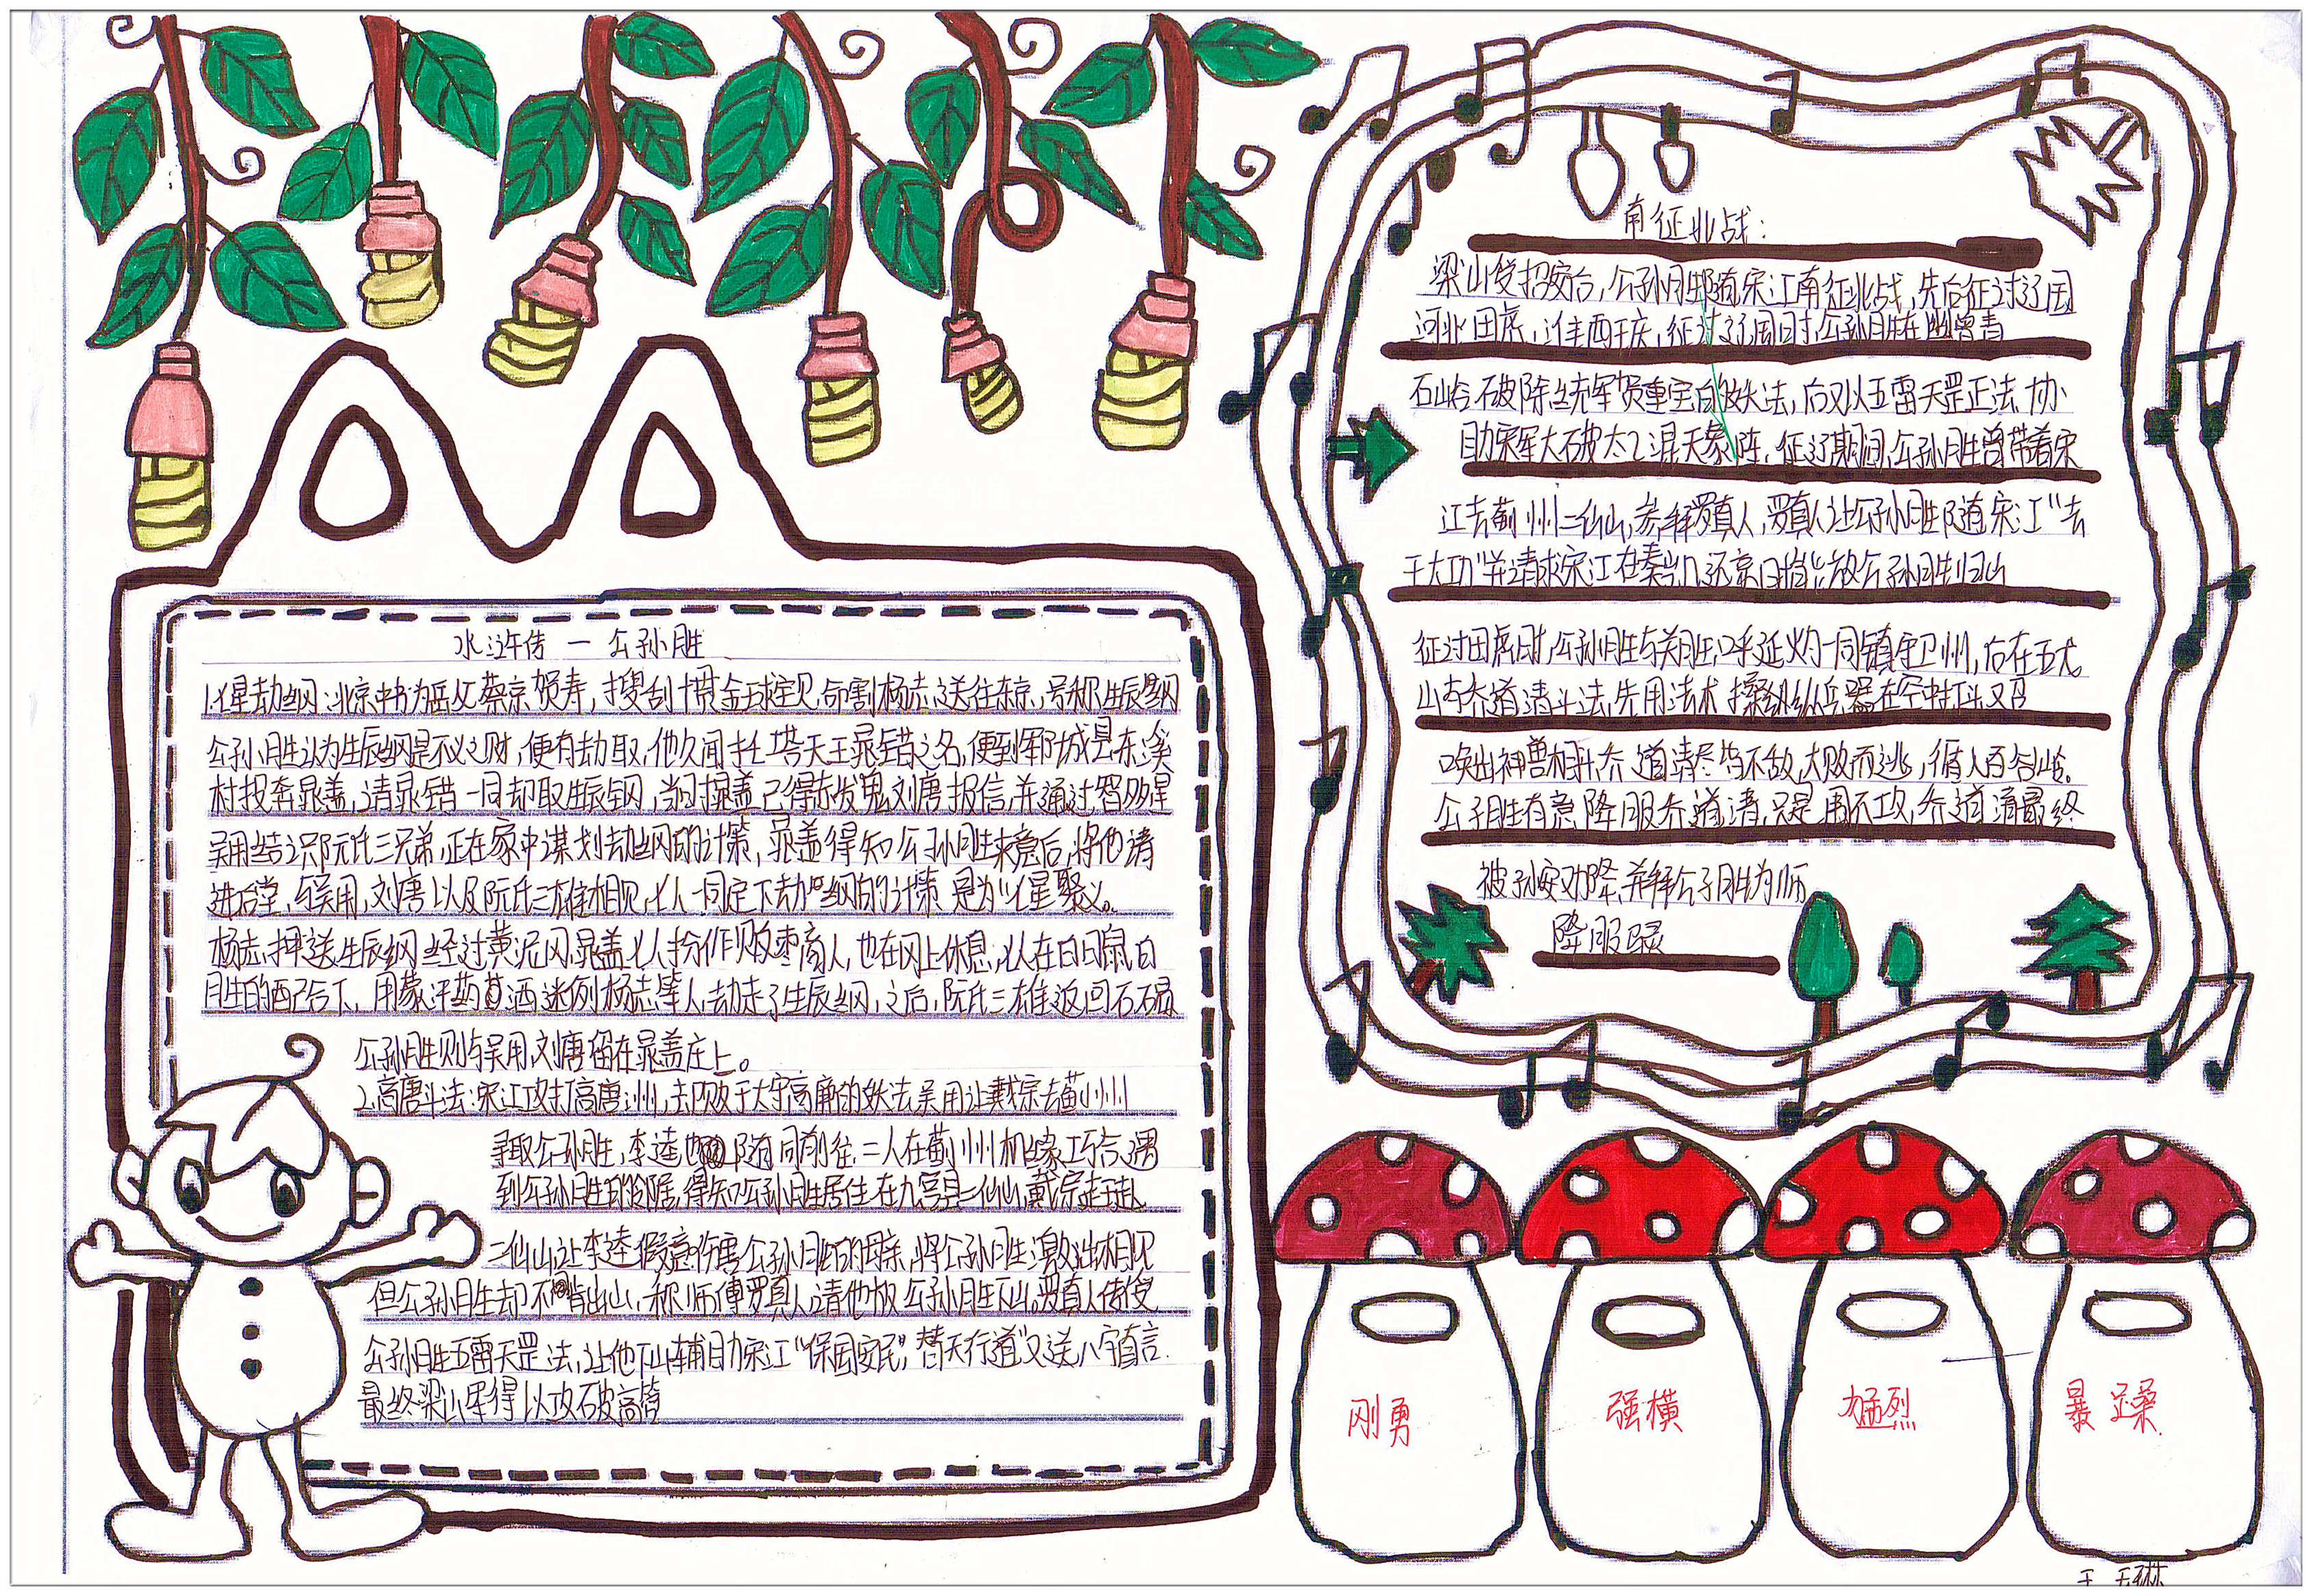 水浒传 — 公孙胜
1.七星劫纲:北京中书为岳父蔡京贺寿,搜刮十贯金球宝贝,命割杨志送往东京,号称生辰纲
公孙胜认为生辰纲是不义之财,便有劫取,他久闻托塔天王晁错之名,便到郓城县东溪
村投奔晁盖,请晁错一同却取生辰纲,当时晁盖已得赤发鬼刘唐报信,并通过智多星
吴用结识阮氏三兄弟,正在家中谋划劫纲的计策,晁盖得知公孙胜来意后,将他请
进后堂,与吴用,刘唐以及阮氏三雄相见,七人一同定下劫纲的计策 是为“七星聚义。
杨志押送生辰纲经过黄泥冈,晁盖七人扮作贩枣商人,也在冈上休息,七人在白日鼠白
胜的配合下,用蒙汗药酒迷倒杨志等人,劫走了生辰纲,之后,阮氏三雄返回石碣
公孙胜则与吴用,刘唐留在晁盖庄上。
2.高唐斗法:宋江攻打高唐州,却败于太守高廉的妖法吴用让戴宗去蓟州
寻取公孙胜,李逵也随同前往.二人在蓟州机缘巧合遇
到公孙胜的邻居,得知公孙胜居住在九宫县二仙山,戴宗赶赴
二仙山让李逵假意伤害公孙胜的母亲,将公孙胜激出相见
但公孙胜却不肯出山,称师傅罗真人请他放公孙胜下山,罗真人传授
公孙胜五雷天罡法,让他下山辅助宋江“保国安民”,替天行道”又送八字直言.
最终梁山军得以攻破高唐
南征北战:
梁山受招安后,公孙胜随宋江南征北战,先后征讨辽国
河北田虎,淮西王庆,征讨辽国时,公孙胜在幽曾青
石山岭破除统军贺重宝的妖法,后又以五雷天罡正法,协
助宋军大破太乙混天象阵,征辽期间,公孙胜曾带着宋
江去蓟州二仙山,参拜罗真人,罗真人让公孙胜随宋江“去
干大功”并请求宋江在奏凯还京日时放公孙胜归山
征讨田虎时,公孙胜与关胜,呼延灼一同镇守卫州,后在五龙
山与乔道清斗法,先用法术操纵兵器在空中打斗,又召
唤出神兽相斗,乔道清尽皆不敌,大败而逃,循入百谷岭.
公孙胜有意降服乔道清,只是围不攻,乔道清最终
被孙安劝降,并拜公孙胜为师
刚勇
强横
猛烈
暴躁.